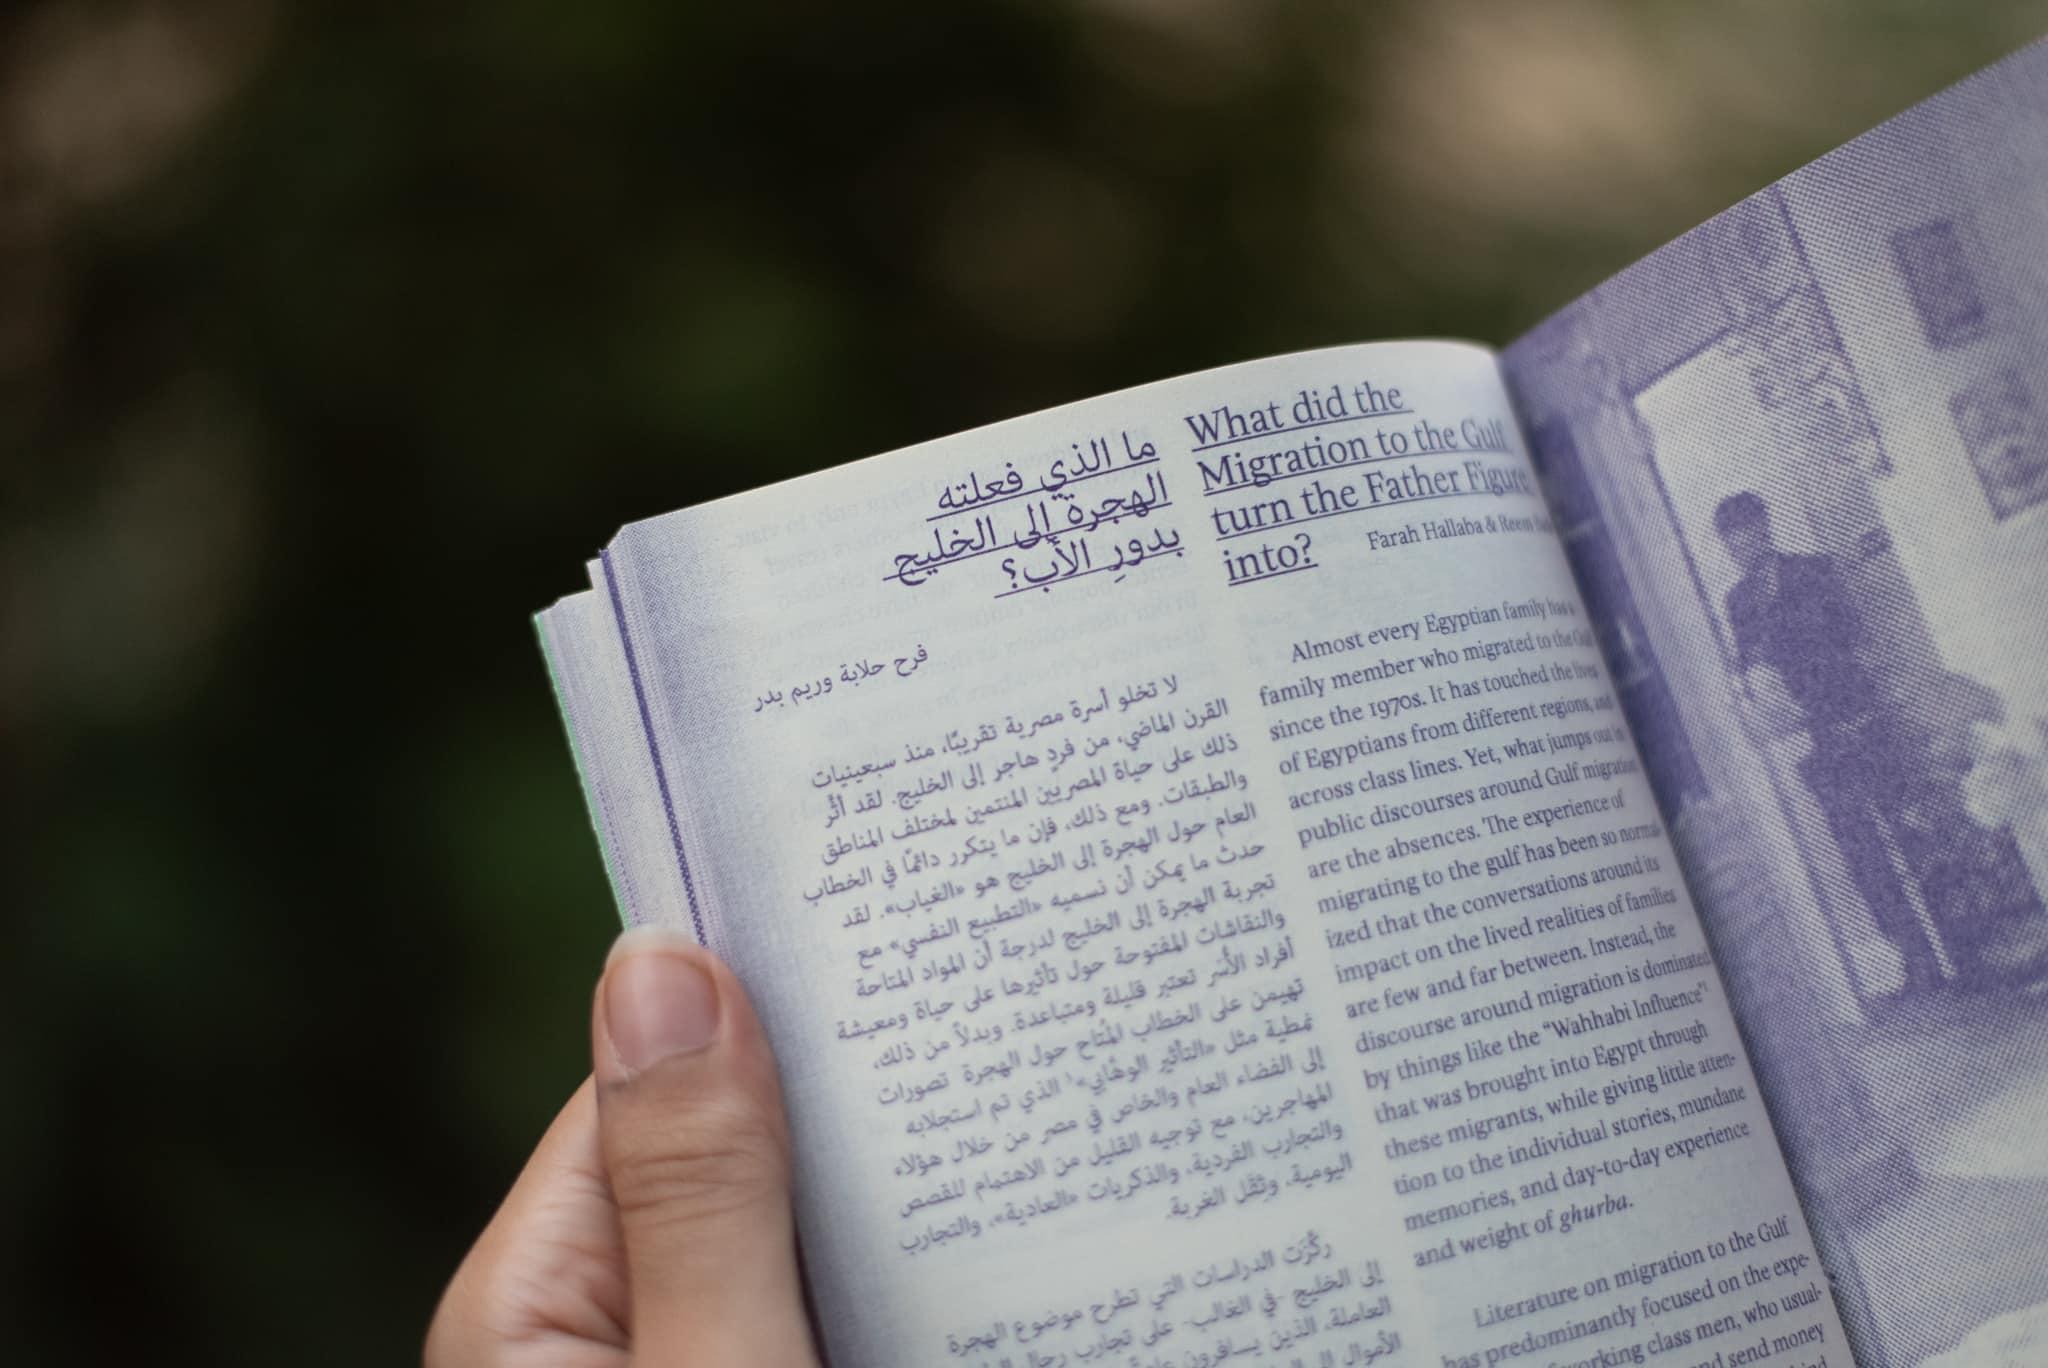 ما الذي فعلته
الهجرة إلى الخليج
بدورِ الأب؟
فرح حلابة وريم بدر
لا تخلو أسرة مصرية تقريبًا، منذ سبعينيات
القرن الماضي، من فردٍ هاجر إلى الخليج. لقد أثَّر
ذلك على حياة المصريين المنتمين لمختلف المناطق
والطبقات. ومع ذلك، فإن ما يتكرر دائمًا في الخطاب
العام حول الهجرة إلى الخليج هو «الغياب». لقد
حدث ما يمكن أن نسميه «التطبيع النفسي» مع
تجربة الهجرة إلى الخليج لدرجة أن المواد المتاحة
والنقاشات المفتوحة حول تأثيرها على حياة ومعيشة
أفراد الأُسَر تعتبر قليلة ومتباعدة. وبدلاً من ذلك،
تهيمن على الخطاب المُتاح حول الهجرة تصورات
نمطية مثل «التأثير الوهَّابي»¹ الذي تم استجلابه
إلى الفضاء العام والخاص في مصر من خلال هؤلاء
المهاجرين، مع توجيه القليل من الاهتمام للقصص
والتجارب الفردية، والذكريات «العادية»، والتجارب
اليومية، وثِقَل الغربة.
ركَّزَت الدراسات التي تطرح موضوع الهجرة
إلى الخليج -في الغالب- على تجارب رجال
العاملة، الذين يسافرون
الأموال
What did the
Migration to the Gulf
turn the Father Figure
into?
Farah Hallaba & Reem
Almost every Egyptian family has a
family member who migrated to the Gulf
since the 1970s. It has touched the lives
of Egyptians from different regions, and
across class lines. Yet, what jumps out in
public discourses around Gulf migration
are the absences. The experience of
migrating to the gulf has been so normal-
ized that the conversations around its
impact on the lived realities of families
are few and far between. Instead, the
discourse around migration is dominated
by things like the “Wahhabi Influence”¹
that was brought into Egypt through
these migrants, while giving little atten-
tion to the individual stories, mundane
memories, and day-to-day experience
and weight of ghurba.
Literature on migration to the Gulf
has predominantly focused on the expe-
working class men, who usual-
and send money